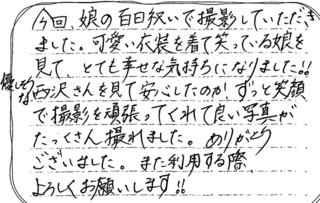 今回、娘の百日祝いで撮影していただき
ました。可愛い衣装を着て笑っている娘を
見て、とても幸せな気持ちになりました!!
優しそうな
西沢さんを見て安心したのか ずっと笑顔
で撮影を頑張ってくれて良い写真が
たっくさん撮れました。ありがとう
ございました。また利用する際、
よろしくお願いします!!